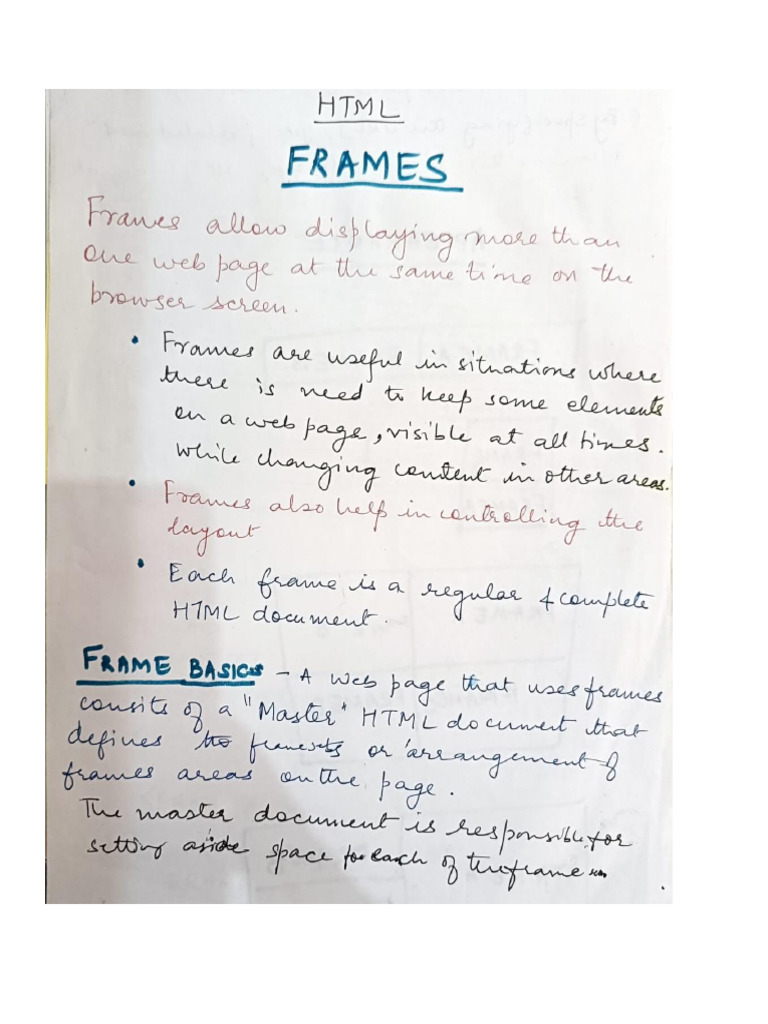 HTML
FRAMES
Frames allow displaying more than
one web page at the same time on the
browser screen.
• Frames are useful in situations where
there is need to keep some elements
on a web page, visible at all times.
while changing content in other areas.
• Frames also help in controlling the
layout
• Each frame is a regular & complete
HTML document.
FRAME BASICS - A web page that uses frames
consits of a "Master" HTML document that
defines the framesets or arrangement of
frames areas on the page.
The master document is responsible for
setting aside space for each of the frame